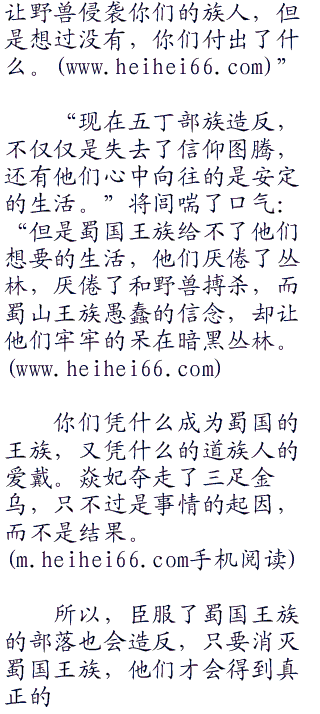 让野兽侵袭你们的族人，但
是想过没有，你们付出了什
么。(www.heihei66.com)”
“现在五丁部族造反，
不仅仅是失去了信仰图腾，
还有他们心中向往的是安定
的生活。”将闾喘了口气：
“但是蜀国王族给不了他们
想要的生活，他们厌倦了丛
林，厌倦了和野兽搏杀，而
蜀山王族愚蠢的信念，却让
他们牢牢的呆在暗黑丛林。
(www.heihei66.com)
你们凭什么成为蜀国的
王族，又凭什么的道族人的
爱戴。焱妃夺走了三足金
乌，只不过是事情的起因，
而不是结果。
(m.heihei66.com手机阅读)
所以，臣服了蜀国王族
的部落也会造反，只要消灭
蜀国王族，他们才会得到真
正的